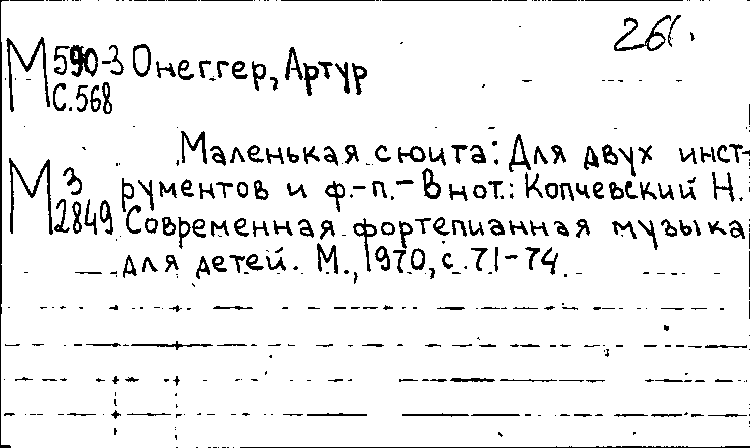 26
М 590-3 Онеггер, Артур
С.568
Маленькая сюита: Для двух инст-
М 3 рументов и ф.-п.- В нот.: Копчевский Н.
2849 Современная фортепианная музыка
для детей. М., 1970, с. 71-74.